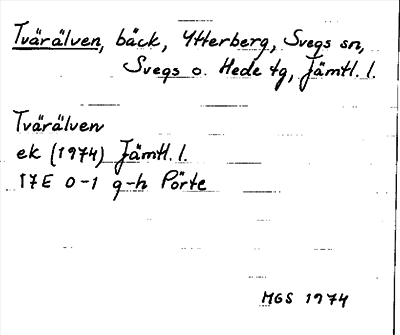 Tvärälven, bäck, Ytterberg, Svegs sn,
Svegs o. Hede tg, Jämtl. l.
Tvärälven
ek (1974) Jämtl. l.
17E 0-1 g-h Pörte
MGS 1974